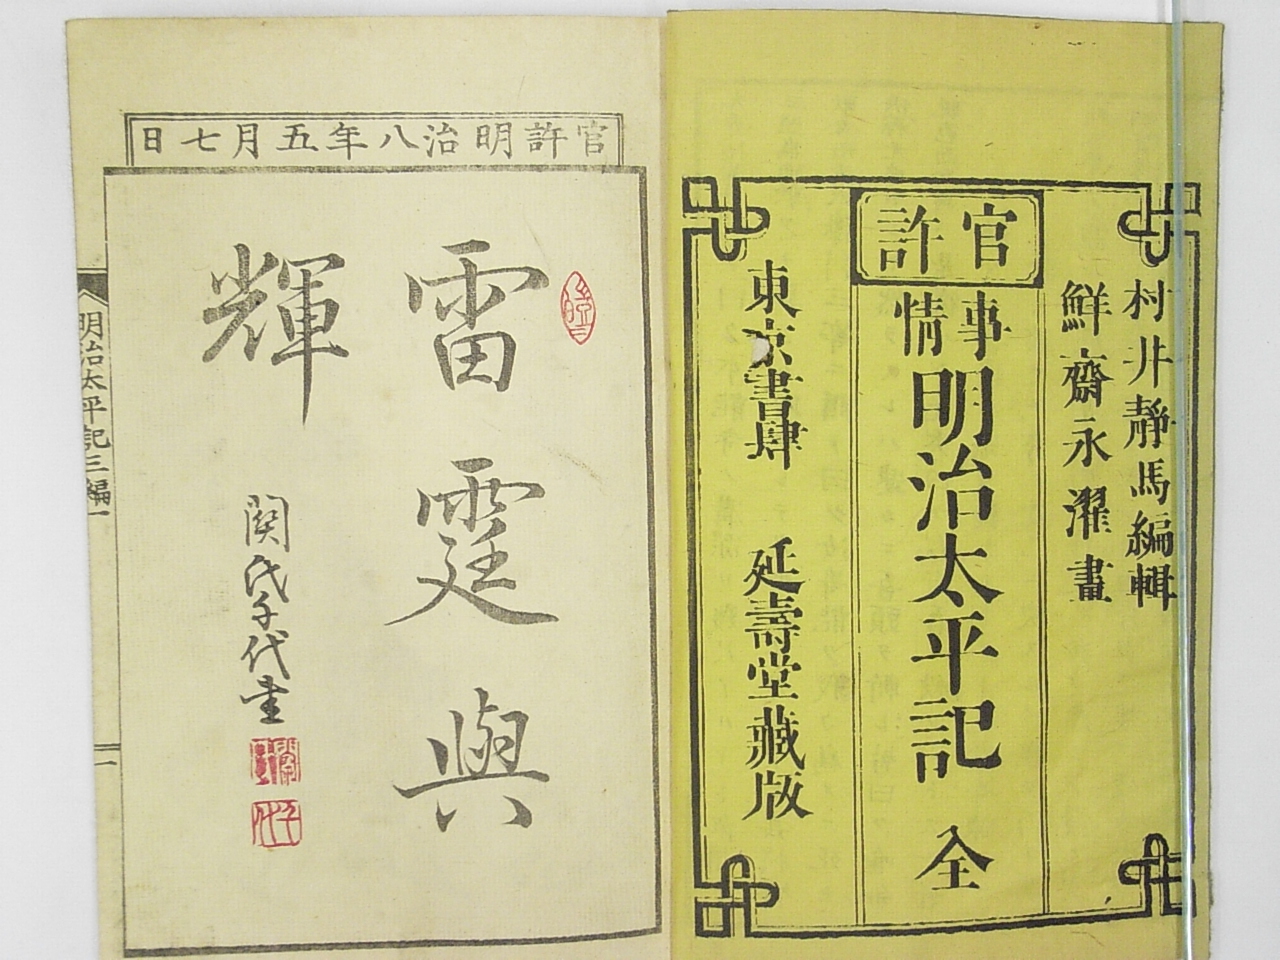 官許
村井靜馬編輯
鮮齋永濯畫
事情
明治太平記 全
東京書肆 延壽堂藏版
官許明治八年五月七日
雷霆與
輝
関氏千代書
明治太平記三編一
一